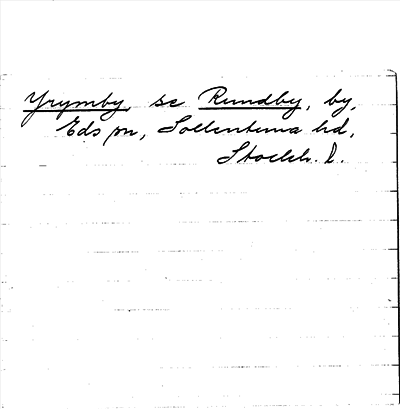 Yrymby, se Rundby, by,
Eds sn, Sollentuna hd,
Stockh. l.